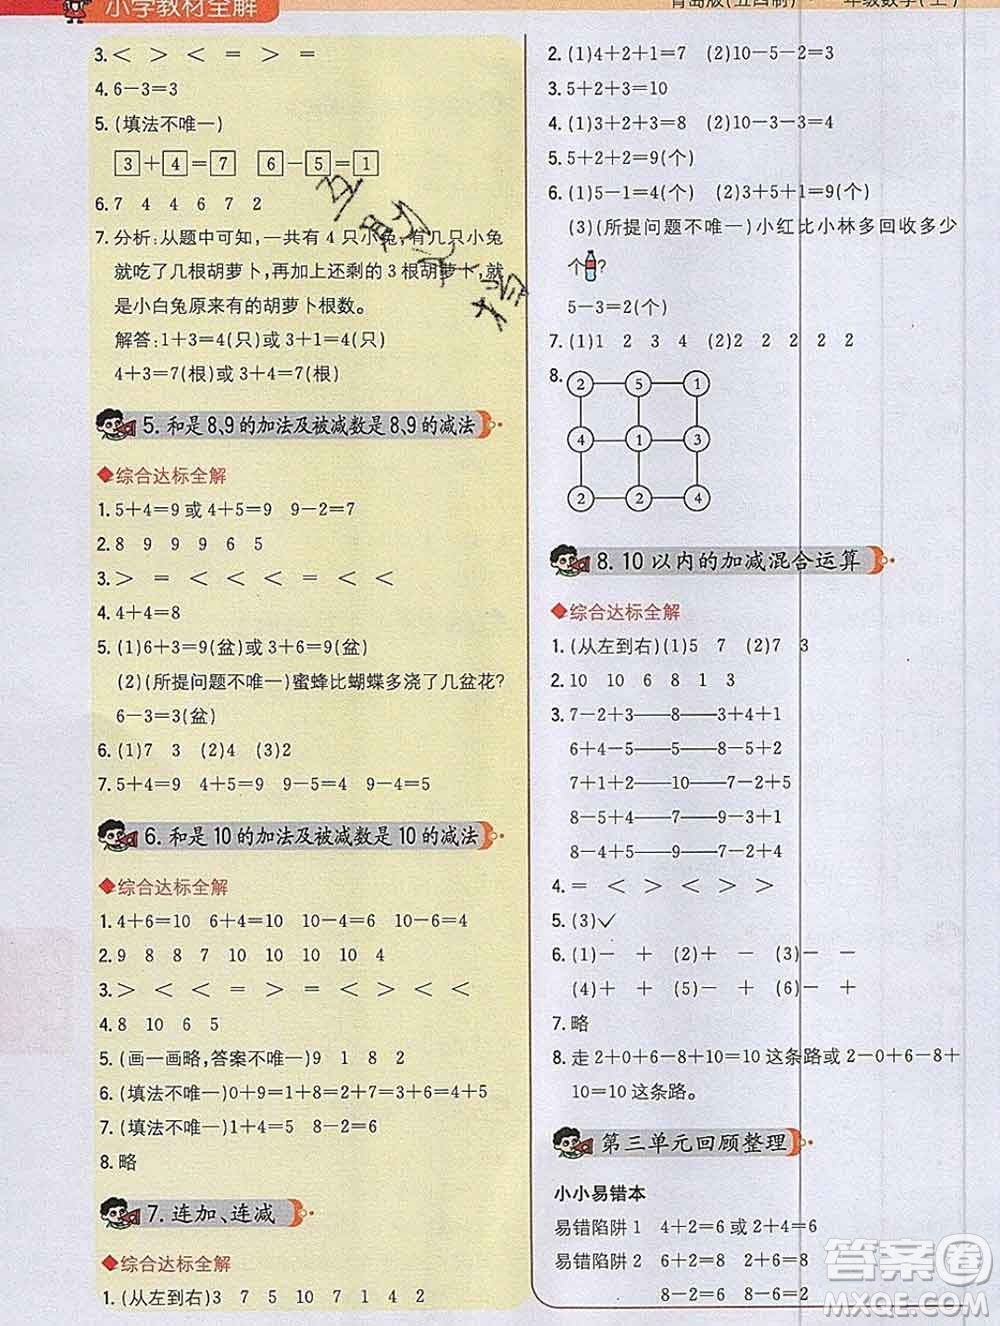 小学教材全解
3. ＜ ＜ ＝ ＝ ＞ ＝
4. 6－3＝3
5. (填法不唯一)
3＋4＝7 6－5＝1
6. 7 4 4 6 7 2
7. 分析:从题中可知,一共有4只小兔,有几只小兔
就吃了几根胡萝卜,再加上还剩的3根胡萝卜,就
是小白兔原来有的胡萝卜根数。
解答:1＋3＝4(只)或3＋1＝4(只)
4＋3＝7(根)或3＋4＝7(根)
5. 和是8、9的加法及被减数是8、9的减法
◆综合达标全解
1. 5＋4＝9或4＋5＝9 9－2＝7
2. 8 9 9 9 6 5
3. ＞ ＝ ＜ ＜ ＜ ＜ ＝ ＞
4. 4＋4＝8
5. (1)6＋3＝9(盆)或3＋6＝9(盆)
(2)(所提问题不唯一)蜜蜂比蝴蝶多浇了几盆花?
6－3＝3(盆)
6. (1)7 3 (2)4 (3)2
7. 5＋4＝9 4＋5＝9 9－5＝4 9－4＝5
6. 和是10的加法及被减数是10的减法
◆综合达标全解
1. 4＋6＝10 6＋4＝10 10－4＝6 10－6＝4
2. 9 8 8 7 10 10 10 10
3. ＞ ＜ ＜ ＝ ＞ ＝ ＜ ＜ ＜ ＜
4. 8 10 6 5
5. (画一画略,答案不唯一)9 1 8 2
6. (填法不唯一)0＋9＝1＋8＝2＋7＝3＋6＝4＋5
7. (填法不唯一)1＋4＝5 8－2＝6
8. 略
7. 连加、连减
◆综合达标全解
1. (从左到右)3 7 5 10 7 1 4 2
2. (1)4＋2＋1＝7 (2)10－2－2＝6
3. 5＋2＋3＝10
4. (1)3＋2＋3＝8 (2)10－3－3＝4
5. 5＋2＋2＝9(个)
6. (1)5－1＝4(个) (2)3＋5＋1＝9(个)
(3)(所提问题不唯一)小红比小林多回收多少
个?
5－3＝2(个)
7. (1)1 2 3 4 (2)2 2 2 2
8. 2 5 1
4 1 3
2 2 4
8. 10以内的加减混合运算
◆综合达标全解
1. (从左到右)(1)5 7 (2)7 3
2. 10 10 6 8 1 7
3. 7－2＋3——8——3＋4＋1
6＋4－5——5——8－5＋2
7＋1＋2——10——7－2＋5
8－5＋4——7——9－5＋4
8－4＋5——9——7－2＋0
4. ＝ ＜ ＞ ＜ ＞ ＞
5. (3)✓
6. (1)－ ＋ (2)＋ － (3)－ －
(4)＋ ＋ (5)＋ － (6)－ ＋
7. 略
8. 走2＋0＋6－8＋10＝10这条路或2－0＋6－8＋
10＝10这条路。
第三单元回顾整理
小小易错本
易错陷阱1 4＋2＝6或2＋4＝6
易错陷阱2 6＋2＝8 2＋6＝8
8－2＝6 8－6＝2
答案圈
MXQE.COM